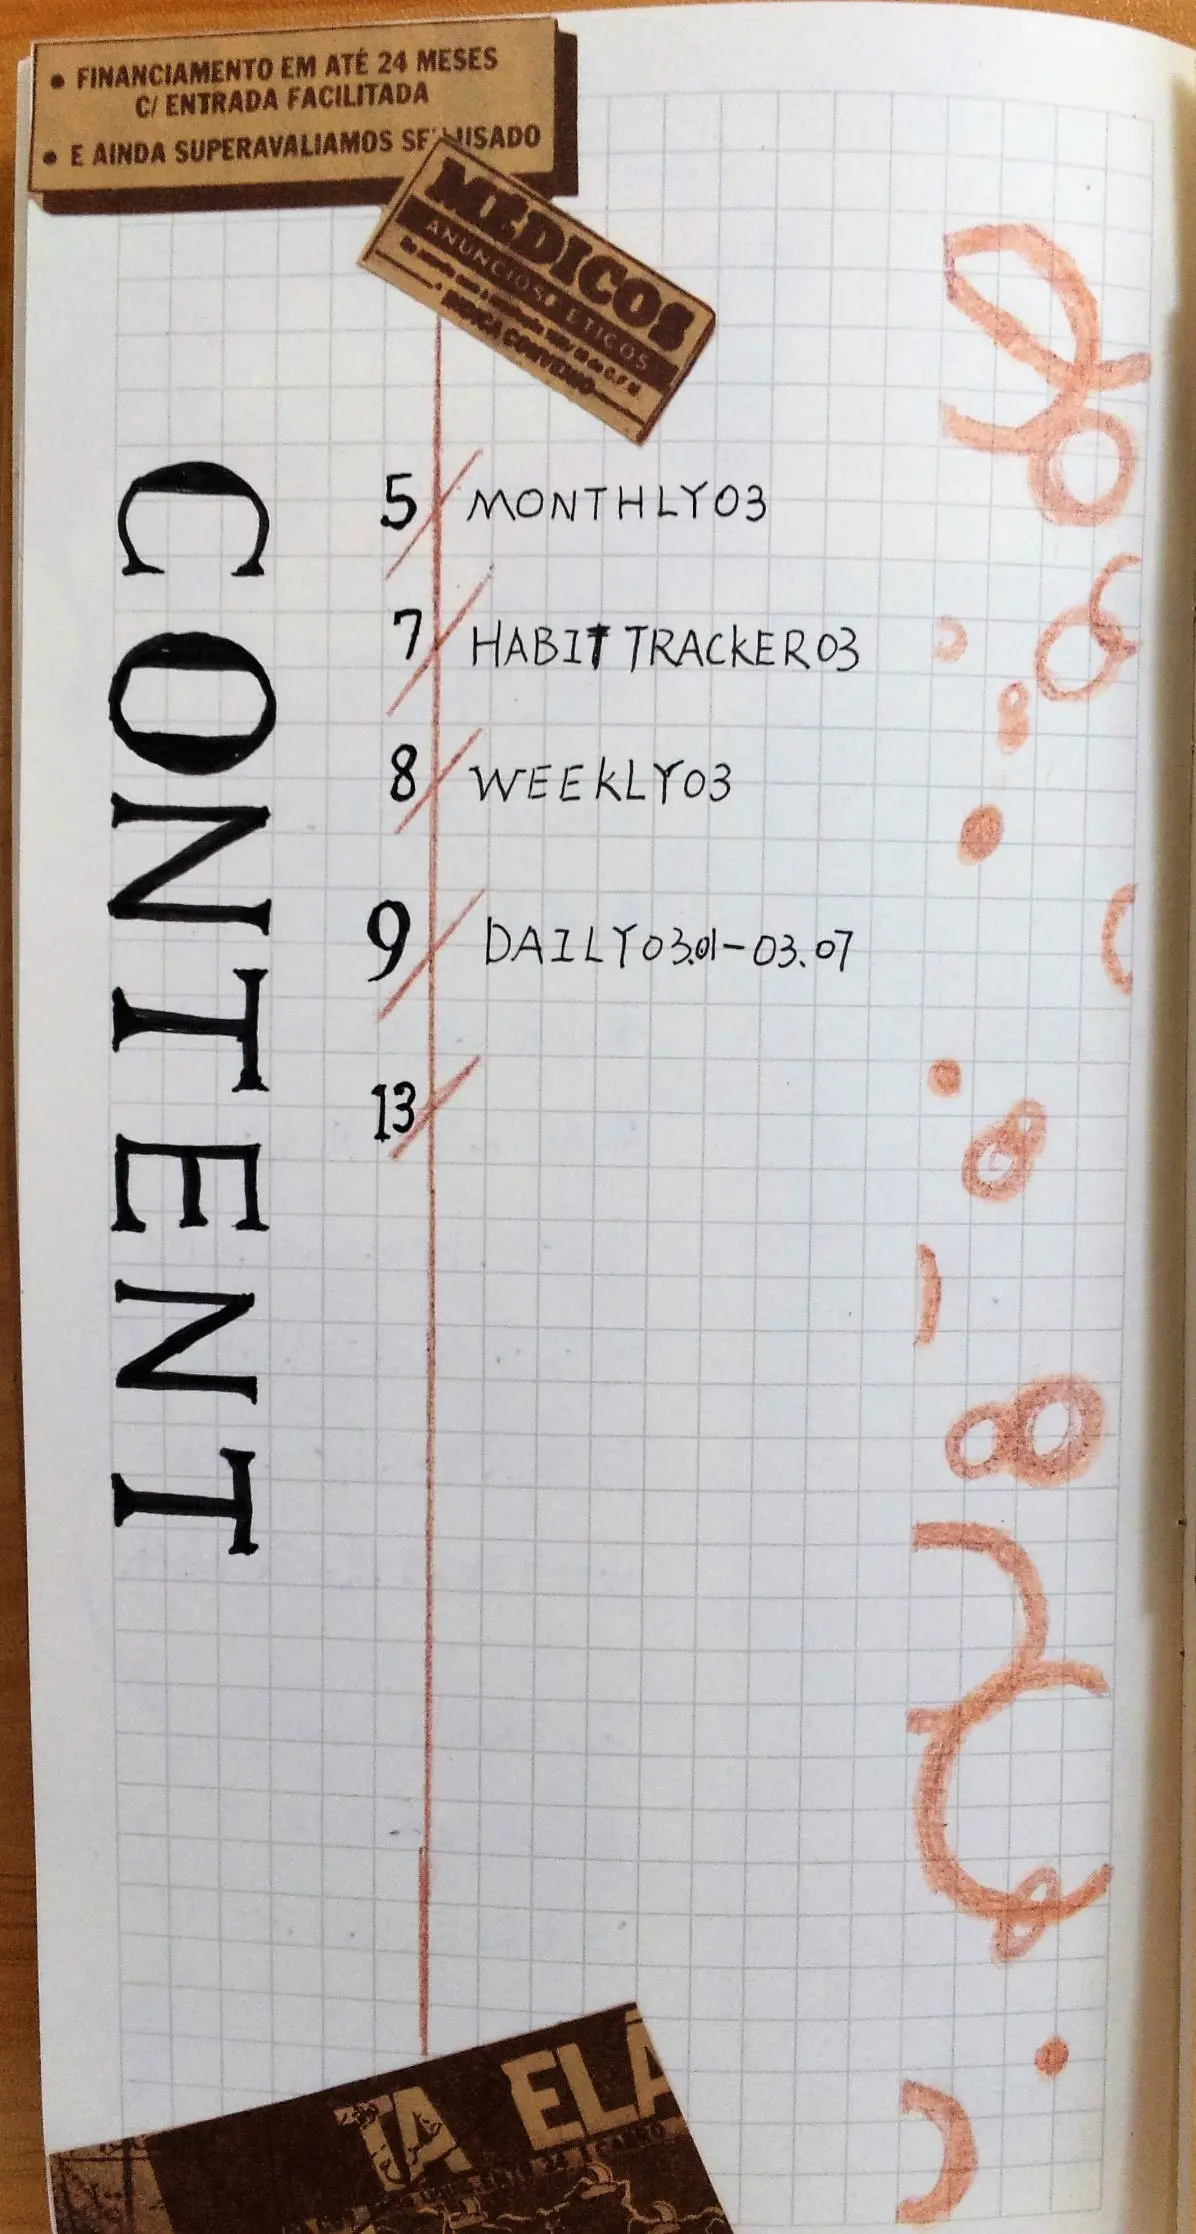 • FINANCIAMENTO EM ATÉ 24 MESES
C/ ENTRADA FACILITADA
• E AINDA SUPERAVALIAMOS USADO
MÉDICOS
ANUNCIOS ETICOS
CONTENT
5 MONTHLY03
7 HABIT TRACKER03
8 WEEKLY03
9 DAILY03.01-03.07
13
TA ELA